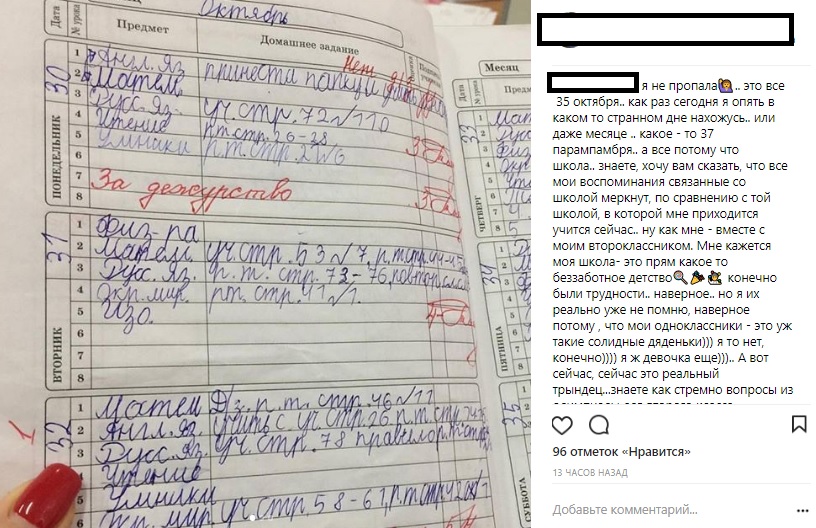 Октябрь
Дата
№ урока
Предмет
Домашнее задание
ПОНЕДЕЛЬНИК
30
1 Англ. яз.
принести папку
Нет
2 Матем.
3 Русс. яз.
уч. стр. 72 √110
4 Чтение
р.т. стр. 26-28
5 Умники
р.т. стр.
6
7
8
За дежурство
ВТОРНИК
31
1 Физ-ра
2 Матем.
уч. стр. 53 √7, р.т. стр. 44-45
3 Русс. яз.
р.т. стр. 73-76, повтор.
4 Окр. мир.
р.т. стр. 41 √1.
5 Изо.
6
7
8
32
1 Матем
Д/з. р.т. стр. 46 √11
2 Англ. яз.
учить с уч. стр. 26 р.т. стр.
3 Русс. яз.
уч. стр. 78 правило, р.т. стр.
Чтение
5 Умники
6 Окр. мир.
уч. стр. 58-61, р.т. стр.
Месяц
Дата
№ урока
Предм
ЧЕТВЕРГ
33
1
2
3
4
5
6
7
8
ПЯТНИЦА
34
1
2
3
4
5
6
7
8
СУББОТА
35
1
2
3
4
я не пропала🙋.. это все
35 октября.. как раз сегодня я опять в
каком то странном дне нахожусь.. или
даже месяце .. какое - то 37
парампамбря.. а все потому что
школа.. знаете, хочу вам сказать, что все
мои воспоминания связанные со
школой меркнут, по сравнению с той
школой, в которой мне приходится
учится сейчас.. ну как мне - вместе с
моим второклассником. Мне кажется
моя школа- это прям какое то
беззаботное детство🔍🎉👩‍🎓 конечно
были трудности.. наверное.. но я их
реально уже не помню, наверное
потому , что мои одноклассники - это уж
такие солидные дяденьки))) я то нет,
конечно)))) я ж девочка еще))).. А вот
сейчас, сейчас это реальный
трындец..знаете как стремно вопросы из
96 отметок «Нравится»
13 ЧАСОВ НАЗАД
Добавьте комментарий...